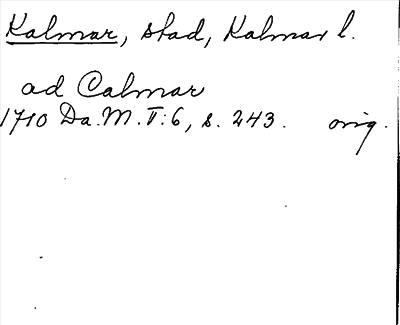 Kalmar, stad, Kalmar l.
ad Calmar
1710 Da. M. V:6, s. 243. orig.